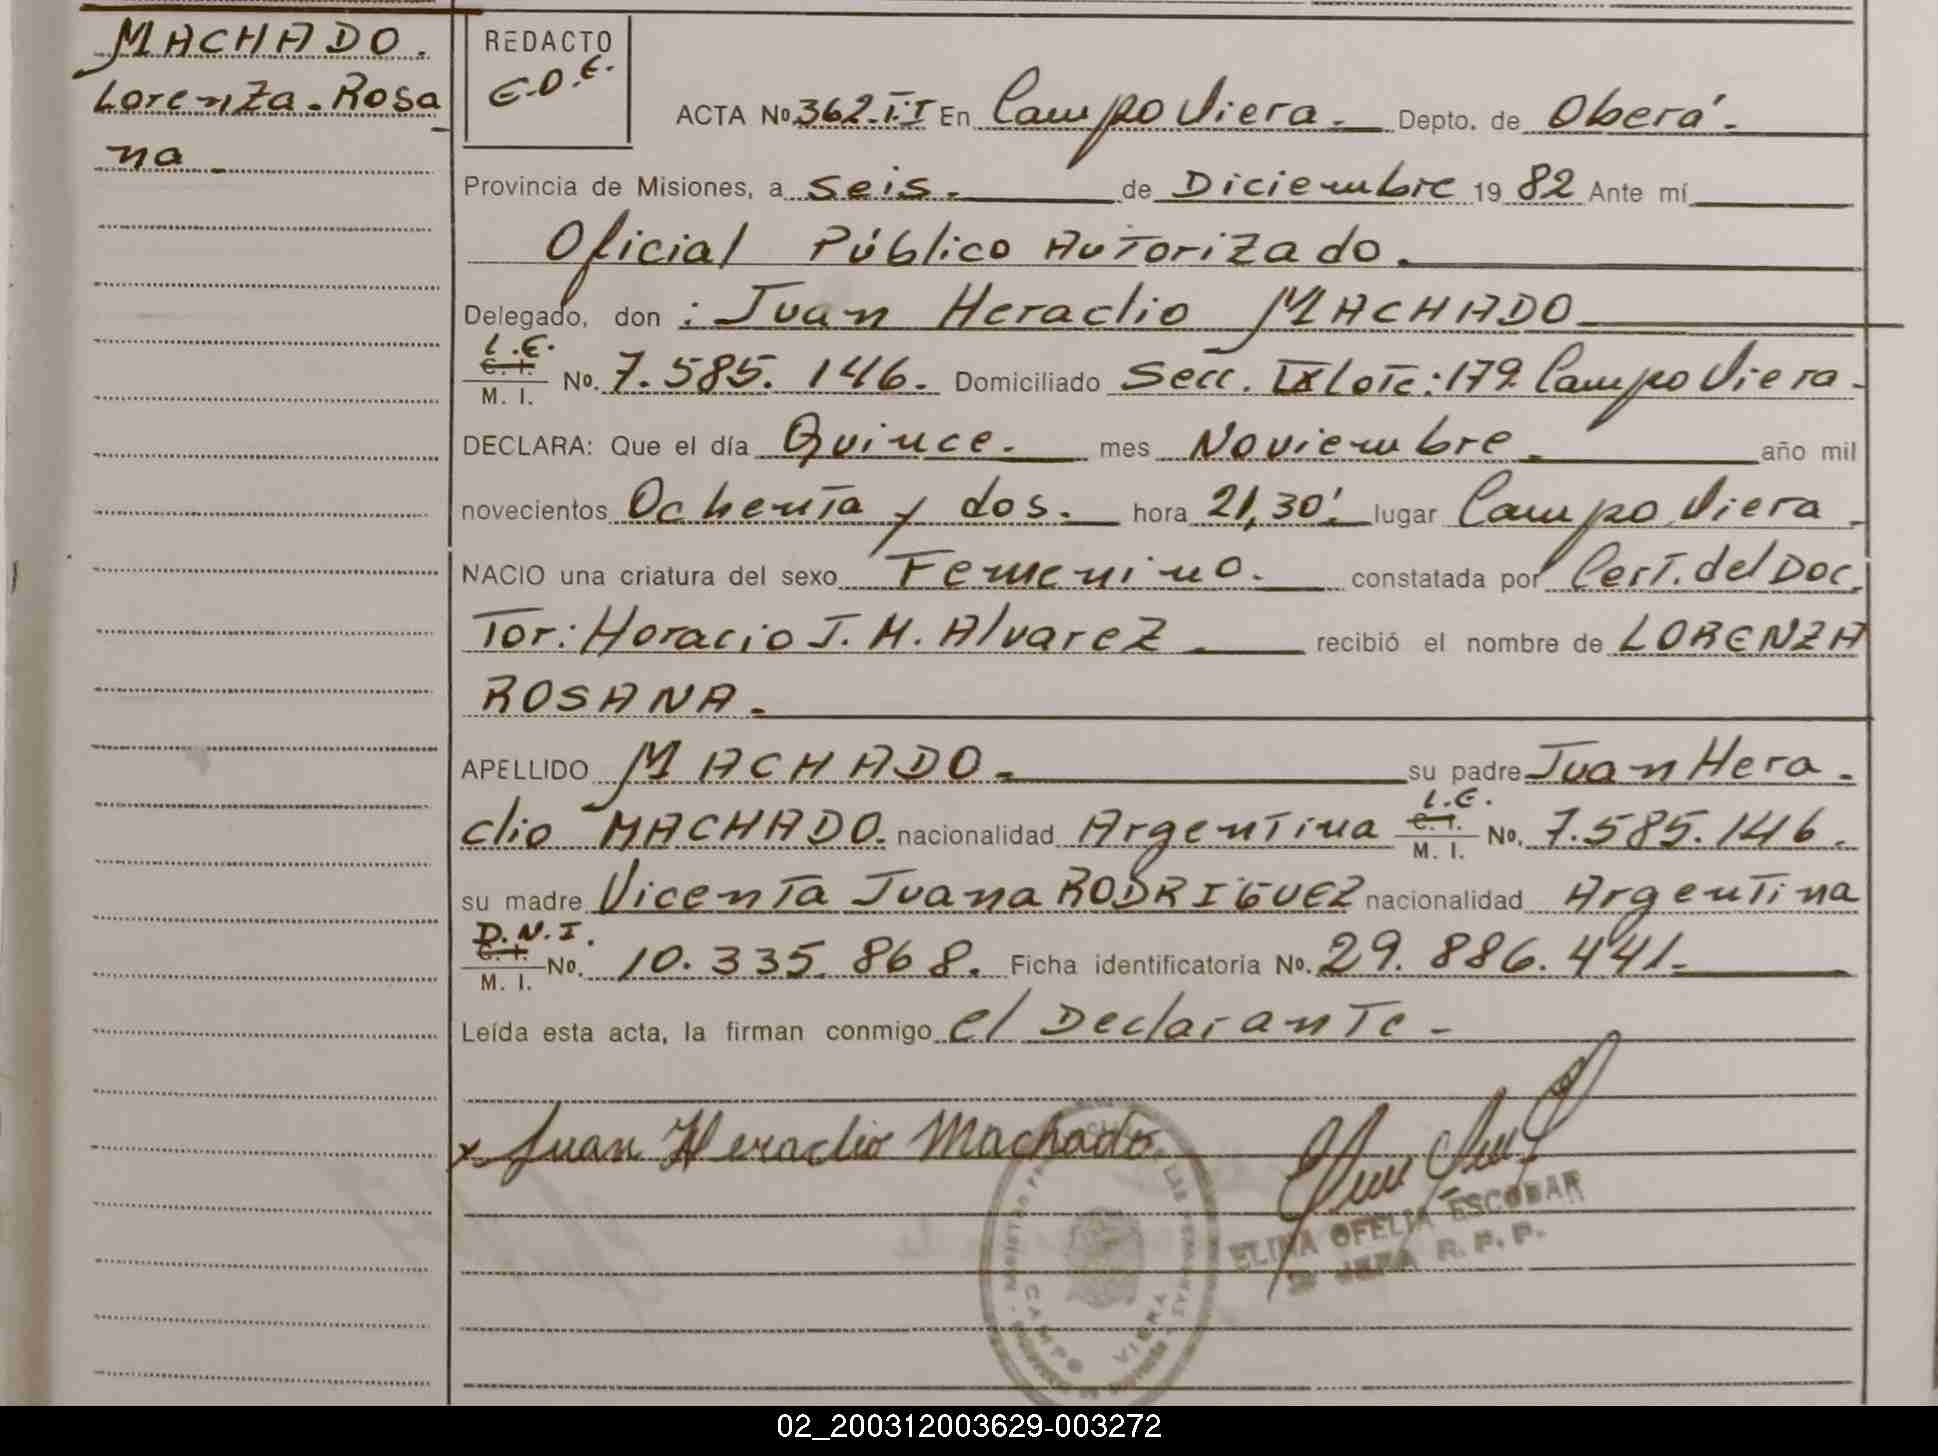 MACHADO.
Lorenza-Rosa
na
REDACTO
E.O.E.
ACTA No. 362.T.I En Campo Viera. Depto. de Oberá.
Provincia de Misiones, a seis. de Diciembre 19 82 Ante mí
Oficial Público Autorizado.
Delegado, don : Juan Heraclio MACHADO
L.E.
C. I.
M. I. No. 7.585.146. Domiciliado Secc. IX Lote: 179. Campo Viera.
DECLARA: Que el día Quince. mes Noviembre. año mil
novecientos Ochenta y dos. hora 21,30'. lugar Campo Viera.
NACIO una criatura del sexo Femenino. constatada por Cert. del Doc.
Tor: Horacio J. M. Alvarez recibió el nombre de LORENZA
ROSANA.
APELLIDO MACHADO. su padre Juan Hera-
clio MACHADO. nacionalidad Argentina L.E. C. I. M. I. No. 7.585.146.
su madre Vicenta Juana RODRIGUEZ nacionalidad Argentina
D.N.I.
C. I.
M. I. No. 10.335.868. Ficha identificatoria No. 29.886.441.
Leída esta acta, la firman conmigo el Declarante-
x Juan Heraclio Machado.
CAMPO VIERA
ELINA OFELIA ESCOBAR
JEFA R. P. P.
02_200312003629-003272